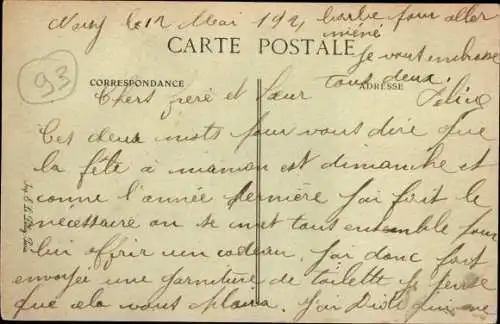 le 12 Mai 192
barbe pour aller
Je vous embrasse
tous deux.
CARTE POSTALE
93
CORRESPONDANCE
ADRESSE
Chers frère et Sœur
Ces deux mots pour vous dire que
la fête à maman est dimanche et
comme l'année dernière j'ai fait le
nécessaire on se met tous ensemble pour
lui offrir un cadeau. j'ai donc fait
envoyée une garniture de toilette je pense
que cela vous plaira. j'ai